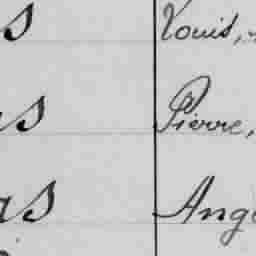 s Louis,
as Pierre,
as Ang